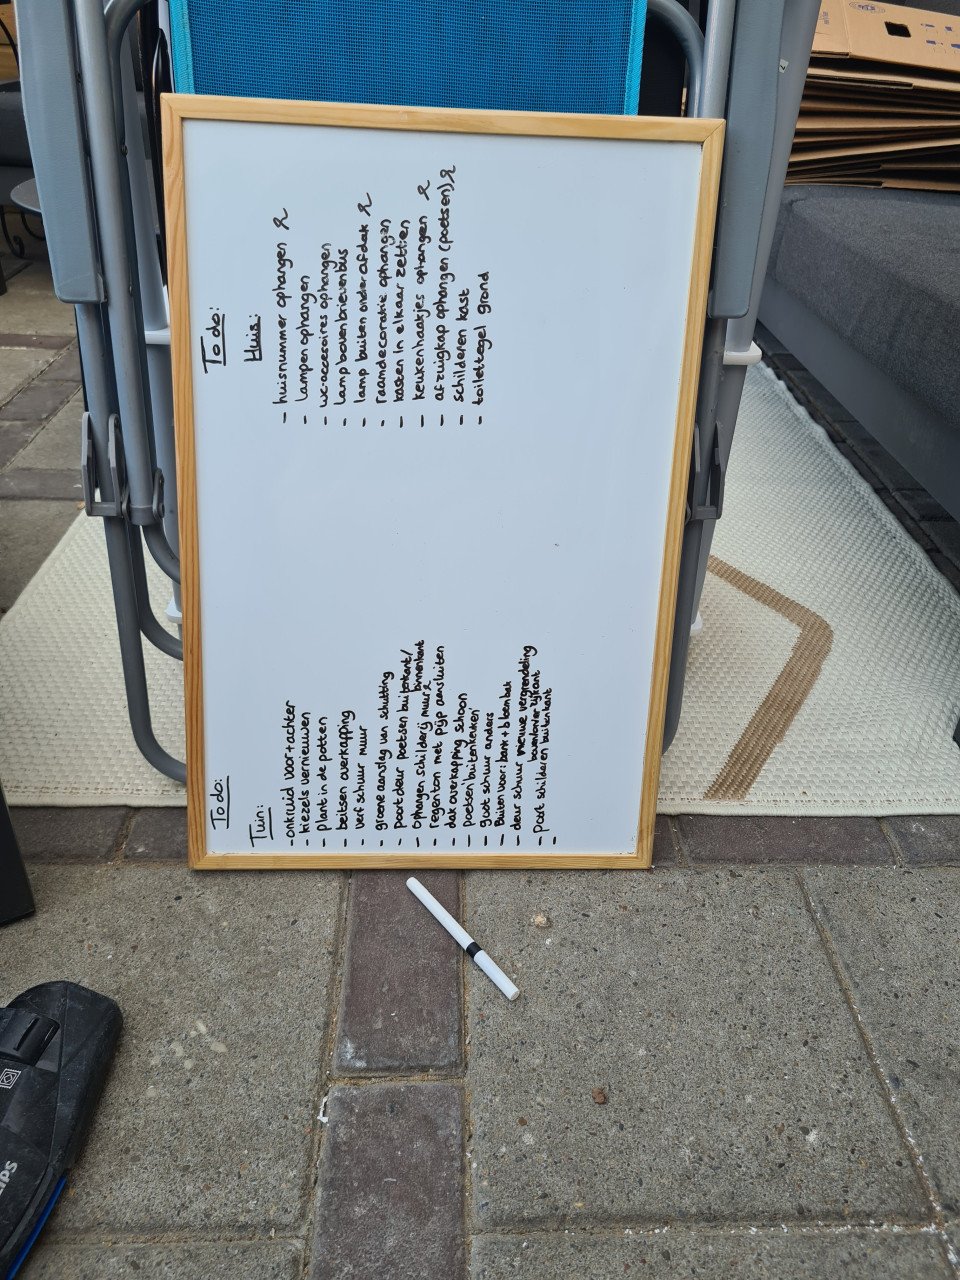 To do:
Tuin:
- onkruid voor + achter
- kiezels vernieuwen
- plant in de potten
- beitsen overkapping
- verf schuur muur
- groene aanslag van schutting
- poort deur poetsen buitenkant/
binnenkant
- ophangen schilderij muur
- regenton met pijp aansluiten
- dak overkapping schoon
- poetsen buitenkeuken
- goot schuur anders
- Buiten voor: bank + bloembak
- deur schuur nieuwe vergrendeling
- poort schilderen buitenkant
-
To do:
Huis:
- huisnummer ophangen
- lampen ophangen
- wc-accesoires ophangen
- lamp boven brievenbus
- lamp buiten onder afdak
- raamdecoratie ophangen
- kasten in elkaar zetten
- keukenhaakjes ophangen
- afzuigkap ophangen (poetsen)
- schilderen kast
- toilettegel grond